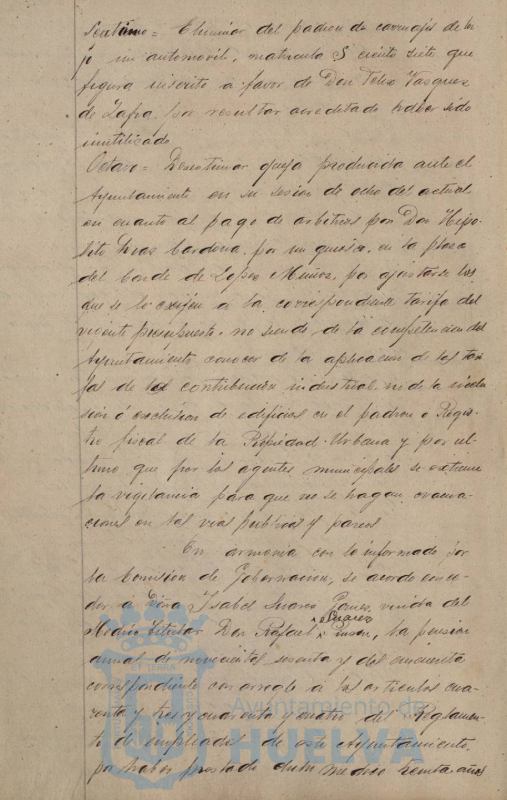 Septimo = Eliminar del padron de carruajes de lu
jo un automovil, matricula S ciento siete que
figura inscrito a favor de Don Telmo Vasquez
de Zafra por resultar acreditado haber sido
inutilizado
Octavo = Desestimar queja producida ante el
Ayuntamiento en su sesion de ocho del actual
en cuanto al pago de arbitrios por Don Hipo-
lito Cardona, por un quiosco, en la plaza
del Conde de Lopez Muñoz, por ajustarse los
que se le exijen a la correspondiente tarifa del
vigente presupuesto, no siendo de la competencia del
Ayuntamiento conocer de la aplicacion de las tari
fas de la contribucion industrial ni de la inclu
sion ó exclusion de edificios en el padron o Regis-
tro fiscal de la Propiedad Urbana y por ul-
timo que por los agentes municipales se extreme
la vigilancia para que no se hagan evacua-
ciones en las vias publicas y paseos
En armonia con lo informado por
la Comision de Gobernacion, se acordo conce-
der a Doña Isabel Suarez Gomez, viuda del
Medico titular Don Rafael, la pension
anual de novecientas sesenta y dos cincuenta
correspondiente con arreglo a los articulos cua-
renta y tres y cuarenta y cuatro del Reglamen-
to de empleados de este Ayuntamiento,
por haber prestado dicho medico treinta años
Ayuntamiento de
HUELVA